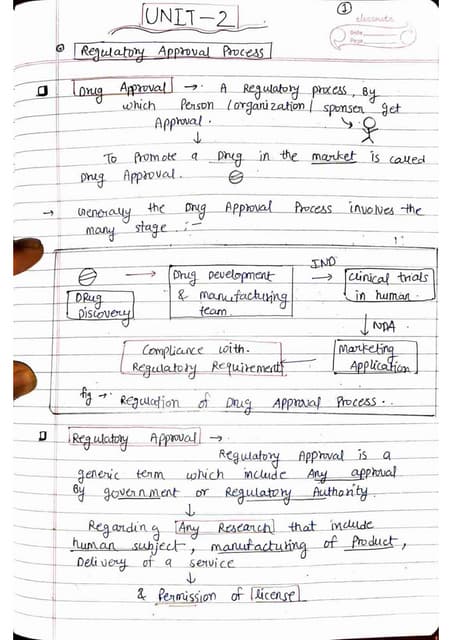 UNIT-2
1
classmate
Date
Page
Regulatory Approval Process
Drug Approval → A Regulatory process, By
which Person /organization/ sponser get
Approval.
↓
To Promote a Drug in the market is called
Drug Approval.
→ Generally the Drug Approval Process involves the
many stage :-
IND
Drug Discovery → Drug Development & manufacturing team → clinical trials in human
↓ NDA
Compliance with Regulatory Requirement ← Marketing Application
fig → Regulation of Drug Approval Process..
Regulatory Approval →
Regulatory Approval is a
generic term which include Any approval
By government or Regulatory Authority.
↓
Regarding Any Research that include
human subject, manufacturing of Product,
Delivery of a service
↓
& Permission of license